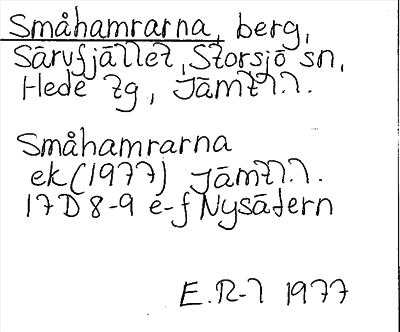 Småhamrarna, berg,
Särvfjället, Storsjö sn,
Hede tg, Jämtl.l.
Småhamrarna
ek (1977) Jämtl.l.
17D 8-9 e-f Nysätern
E.R-l 1977